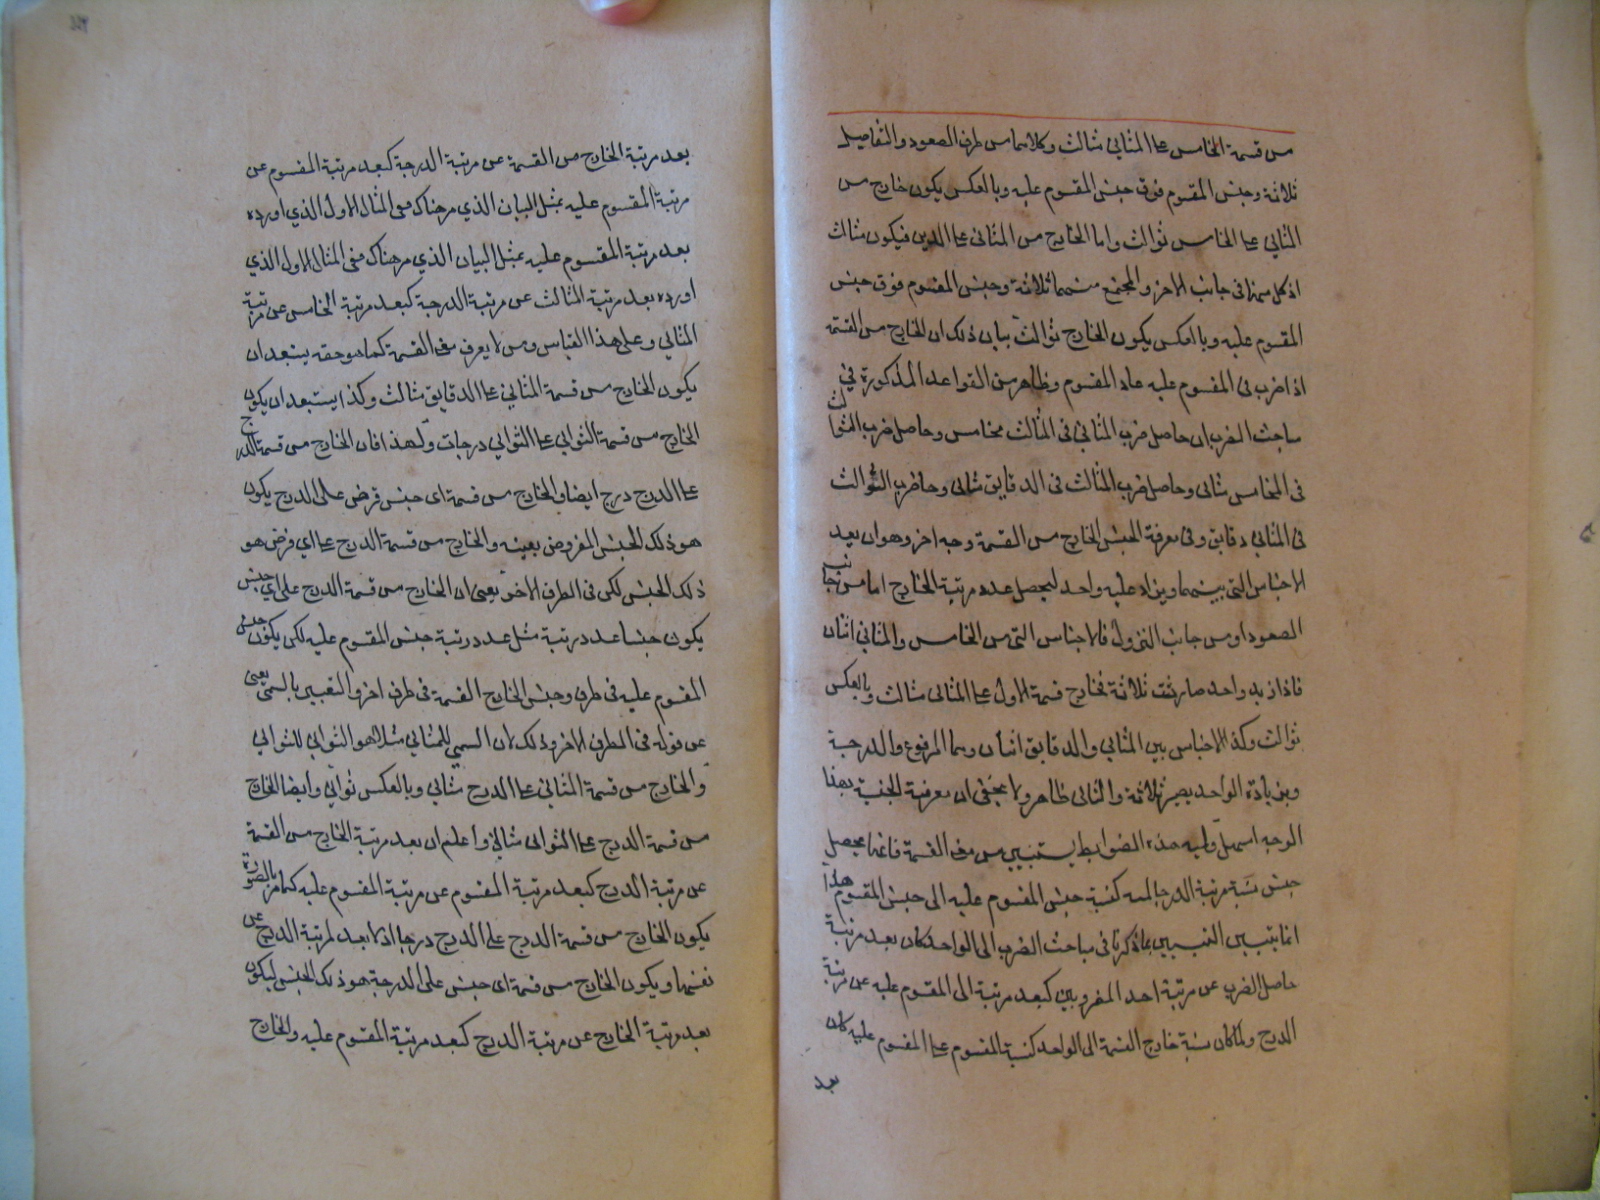 من قسمة الخامس على المثاني مثالث وكلاهما من طرف الصعود والتفاضل
ثلاثة وجنس المقسوم فوق جنس المقسوم عليه وبالعكس يكون خارج من
المثاني على الخامس ثوالث واما الخارج من المثاني على الدرج فيكون مثالث
اذ كل منهما في جانب الاخر والمجتمع منهما ثلاثة وجنس المقسوم فوق جنس
المقسوم عليه وبالعكس يكون الخارج ثوالث بيان ذلك ان الخارج من القسمة
اذا ضرب في المقسوم عليه عاد المقسوم وظاهر من القواعد المذكورة في
مباحث الضرب ان حاصل ضرب المثاني في المثالث مخامس وحاصل ضرب الثوالث
في المخامس مثاني وحاصل ضرب المثالث في الدقايق مثاني وحاضرب الثوالث
في المثاني دقايق وفي معرفة الجنس الخارج من القسمة وجه اخر وهو ان يعد
الاجناس التي بينهما ويزاد عليه واحد ليحصل عدد مرتبة الخارج اما من جانب
الصعود او من جانب النزول فالاجناس التي من الخامس والمثاني اثنان
فاذا زيد واحد صارت ثلاثة فخارج قسمة الاول على المثاني مثالث وبالعكس
ثوالث وكذا الاجناس بين المثاني والدقايق اثنان وهما المرفوع والدرجة
وبزيادة الواحد يصير ثلاثة والثاني ظاهر ولا يخفى ان معرفة الجنسية بهذا
الوجه اسهل ولمية هذه الضوابط يستبين من معنى القسمة فانها يحصل
جنس نسبة مرتبة الدرجة اليه كنسبة جنس المقسوم عليه الى جنس المقسوم هذا
انما يتبين التبيين بما ذكرنا في مباحث الضرب الى الواحد كان بعد مرتبة
حاصل الضرب عن مرتبة احد المضروبين كبعد مرتبة الى المقسوم عليه عن مرتبة
الدرج ولما كان نسبة خارج القسمة الى الواحد كنسبة المقسوم على المقسوم عليه كان
بعد
بعد مرتبة الخارج من القسمة عن مرتبة الدرجة كبعد مرتبة المقسوم عن
مرتبة المقسوم عليه بمثل البيان الذي مر هناك ففي المثال الاول الذي اورده
بعد مرتبة المقسوم عليه بمثل البيان الذي مر هناك ففي المثال الاول الذي
اورده بعد مرتبة المثالث عن مرتبة الدرجة كبعد مرتبة الخامس عن مرتبة
المثاني وعلى هذا القياس ومن لا يعرف معنى القسمة كما هو حقه يستبعد ان
يكون الخارج من قسمة المثاني على الدقايق مثالث وكذا يستبعد ان يكون
الخارج من قسمة الثواني على الثواني درجات ولهذا فان الخارج من قسمة الدرج
على الدرج درج ايضا والخارج من قسمة اي جنس فرض على الدرج يكون
هو ذلك الجنس المفروض بعينه والخارج من قسمة الدرج على اي فرض هو
ذلك الجنس لكن في الطرف الاخر يعني ان الخارج من قسمة الدرج على اي جنس
يكون جنسا عدد مرتبة مثل عدد رتبة جنس المقسوم عليه لكن يكون جنس
المقسوم عليه في طرف وجنس الخارج القسمة في طرف اخر والتعبير بالسمي يغني
عن قوله في الطرف الاخر وذلك لان السمي للمثاني مثلا هو الثواني للثواني
والخارج من قسمة المثاني على الدرج مثاني وبالعكس ثواني وايضا الخارج
من قسمة الدرج على الثواني مثاني واعلم ان بعد مرتبة الخارج من القسمة
عن مرتبة الدرج كبعد مرتبة المقسوم عن مرتبة المقسوم عليه كما مر بالضرورة
يكون الخارج من قسمة الدرج على الدرج درجا اذ لا بعد لمرتبة الدرج عن
نفسها ويكون الخارج من قسمة اي جنس على الدرجة هو ذلك الجنس ليكون
بعد مرتبة الخارج عن مرتبة الدرج كبعد مرتبة المقسوم عليه والخارج